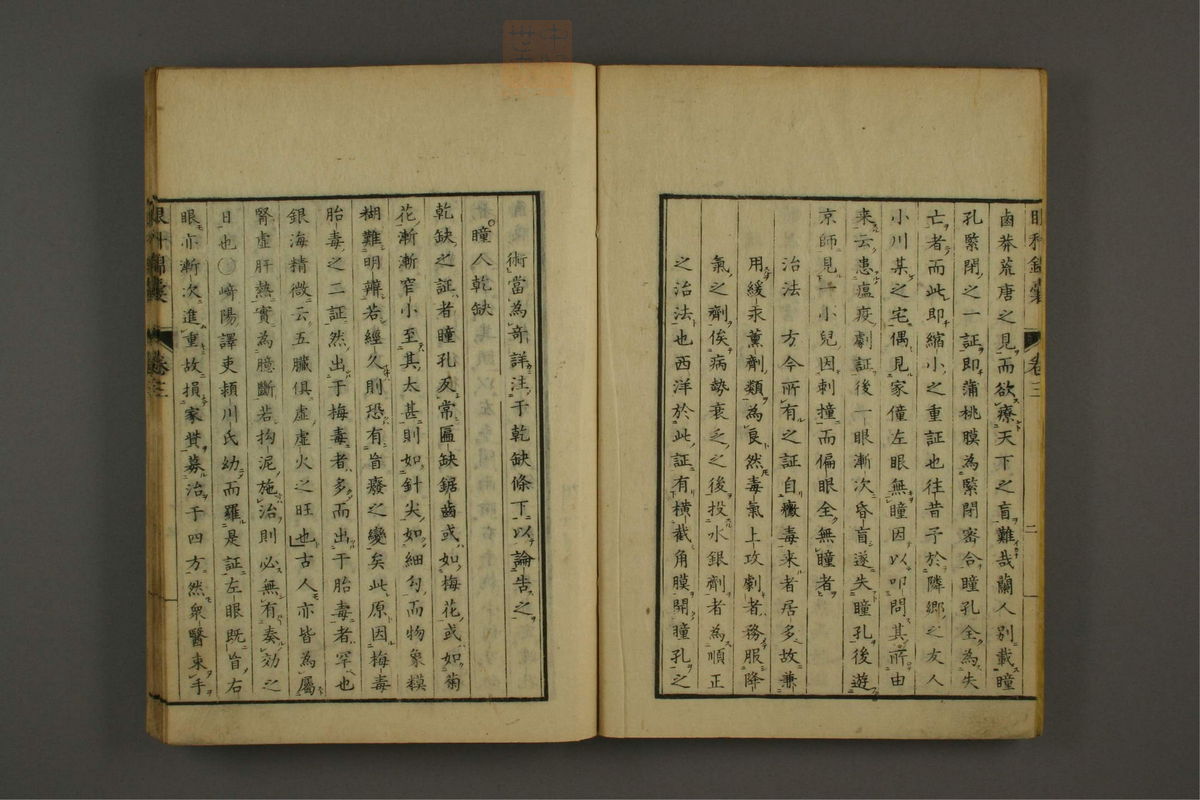 眼科錦囊 卷三 二
鹵莽荒唐之見而欲療天下之盲難哉蘭人別載瞳
孔緊閉之一証即蒲桃膜為緊閉密合瞳孔全為失
亡者而此即縮小之重証也往昔予於隣鄉之友人
小川某之宅偶見家僮左眼無瞳因以叩問其所由
来云患瘟疫劇証後一眼漸次昏盲遂失瞳孔後遊
京師見一小兒因刺撞而偏眼全無瞳者
治法 方今所有之証自黴毒来者居多故兼
用緩汞薰劑類為良然毒氣上攻劇者務服降
氣之劑俟病勢衰乏之後投水銀劑者為順正
之治法也西洋於此証有橫截角膜開瞳孔之
術當為奇詳注于乾缺條下以論告之
瞳人乾缺
乾缺之証者瞳孔反常匾缺鋸齒或如梅花或如菊
花漸漸窄小至其太甚則如針尖如細勾而物象糢
糊難明辨若經久則恐有盲癈之變矣此原因梅毒
胎毒之二証然出于梅毒者多而出于胎毒者罕也
銀海精微云五臟俱虛虛火之旺也古人亦皆為屬
腎虛肝熱實為臆斷若拘泥施治則必無有奏効之
日也○﨑陽譯吏頴川氏幼而羅是証左眼既盲右
眼亦漸次進重故損家貲募治于四方然衆醫束手
眼科錦囊 卷三